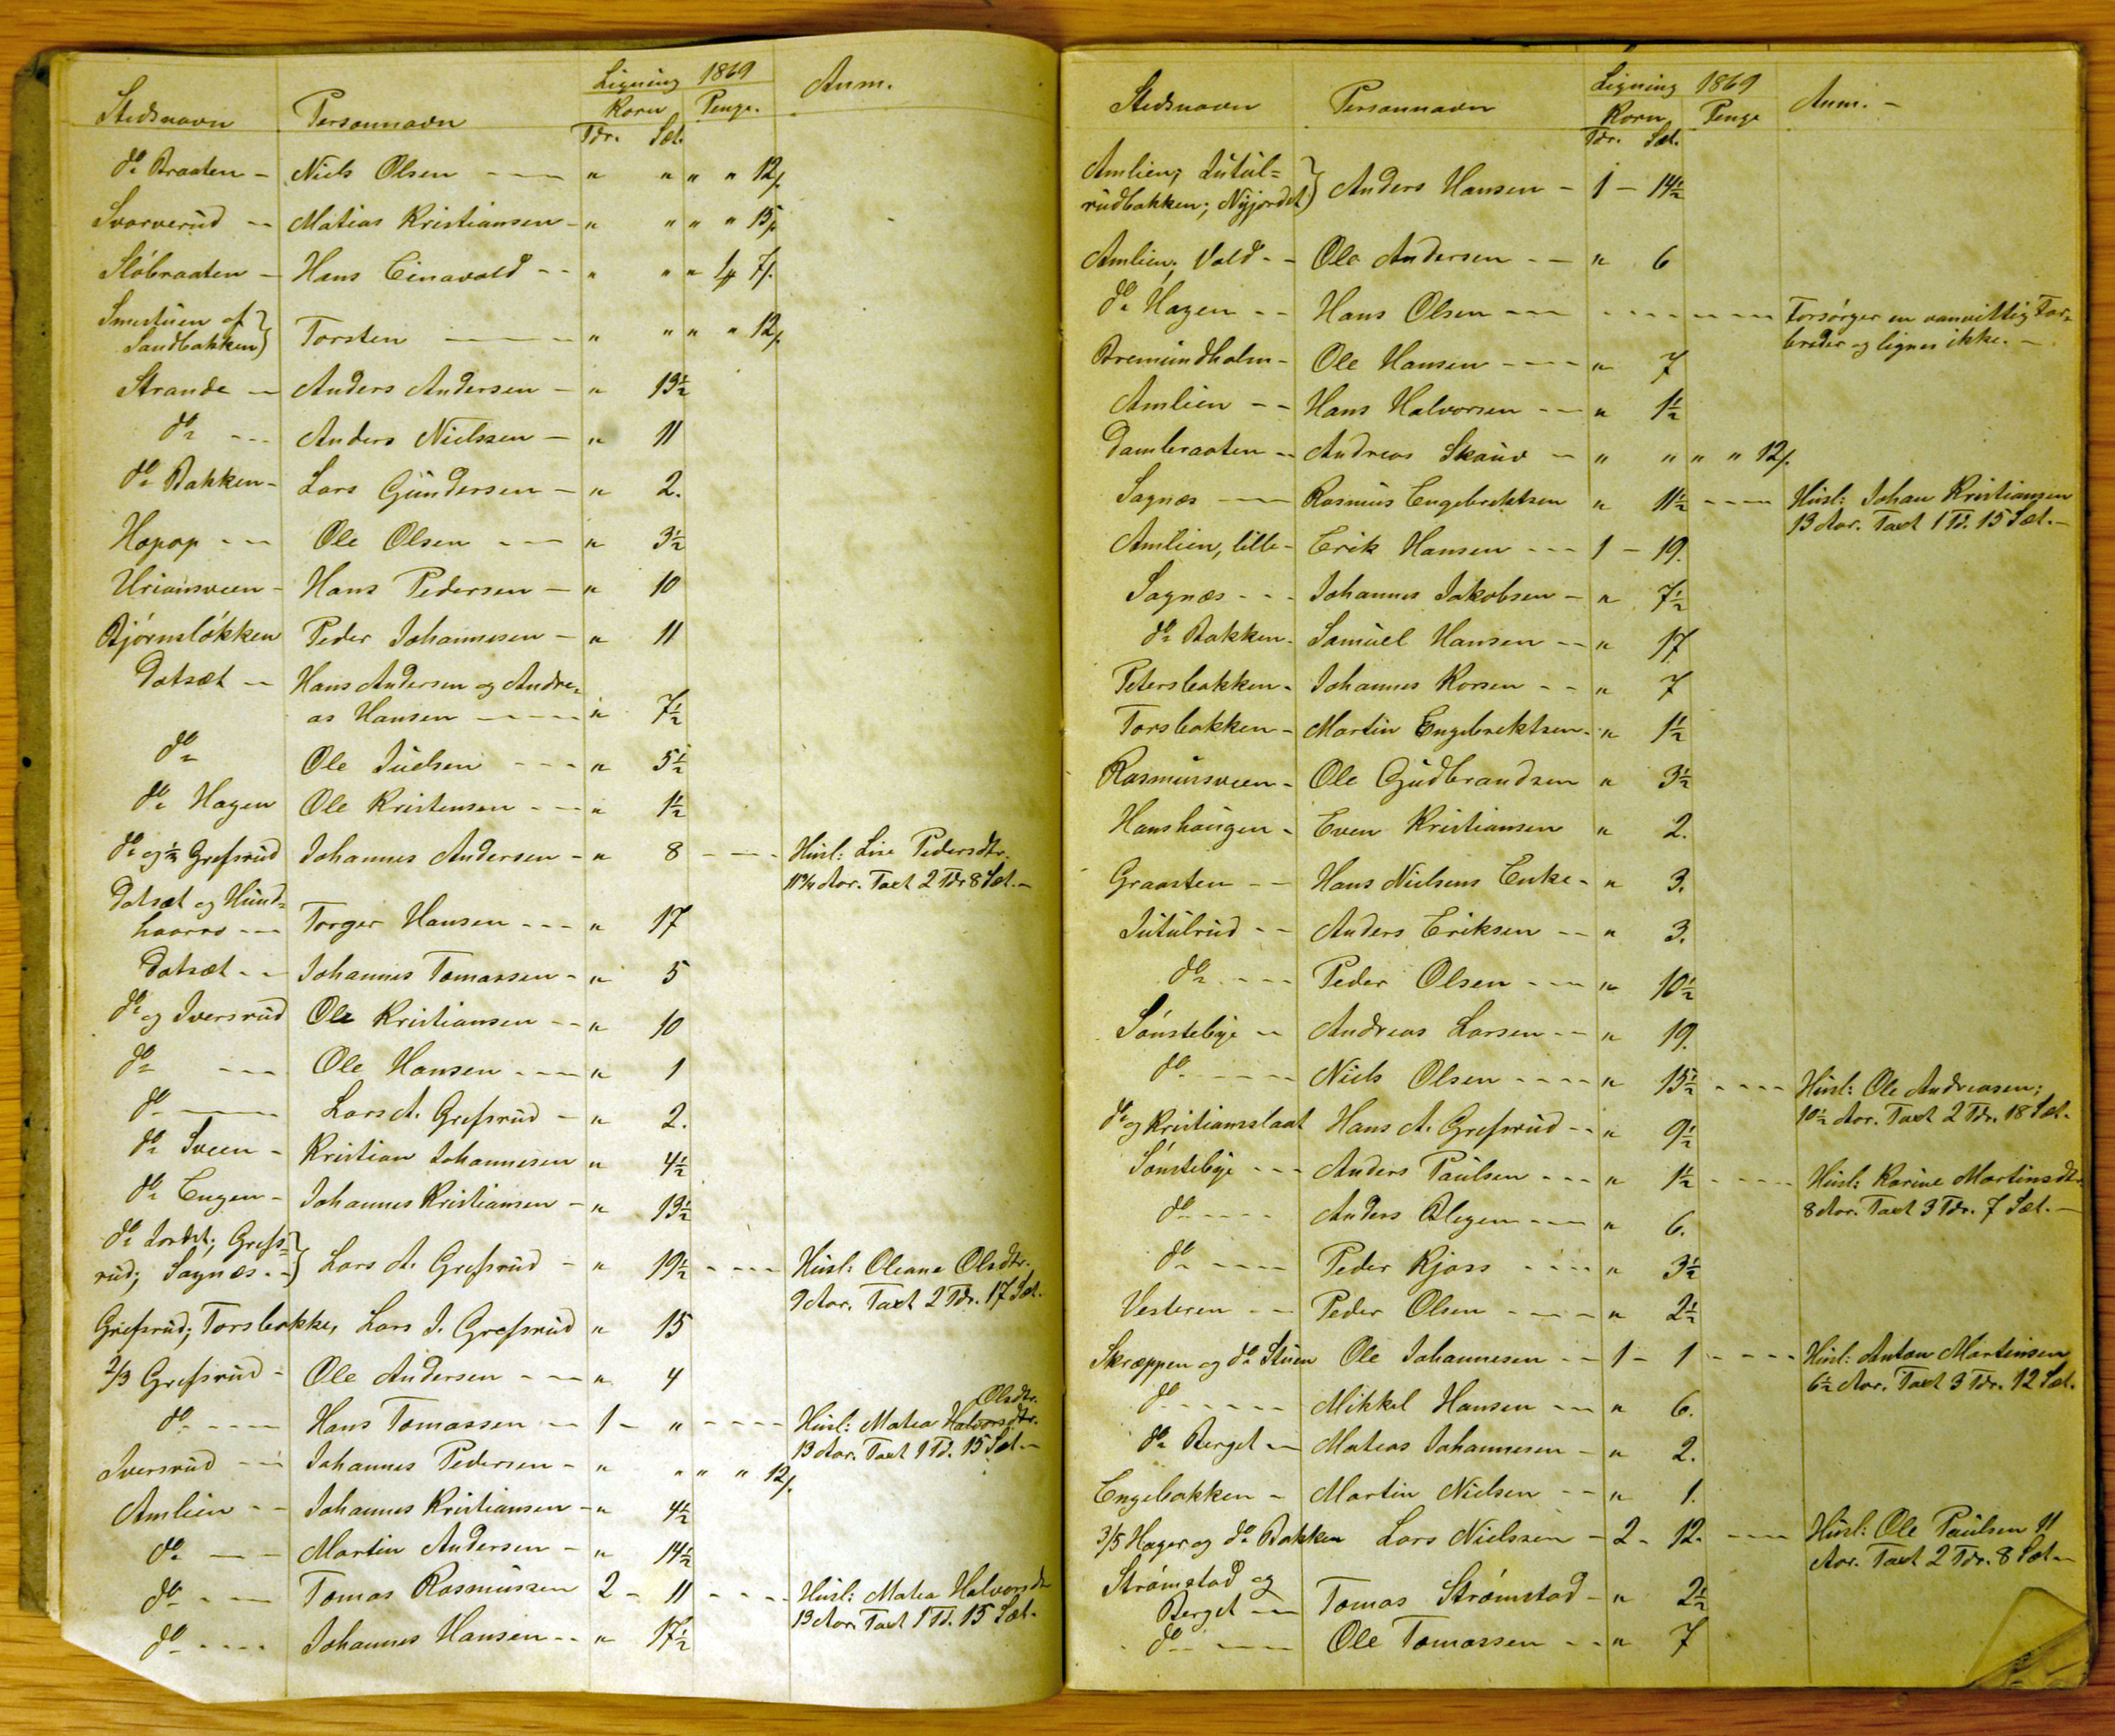 Ligning 1869
Stedsnavn Personnavn Korn Penge. Anm.
Tdr. Sæt.
do Braaten - Niels Olsen - - - " " " " 12/.
Svarverud - Matias Kristiansen - " " " " 15/.
Slóbraaten - Hans Einavald - - " " " 4 7/.
Smestuen af
Sandbakken) Torsten - - - " " " " 12/.
Strande - Anders Andersen - " 13½
do - - - Anders Nielssen - " 11
do Bakken - Lars Gundersen - " 2.
Hopop - - - Ole Olsen - - - " 3½
Uriansveen - Hans Pedersen - " 10
Bjórnslókken Peder Johannesen - " 11
Dotsæt - Hans Andersen og Andre-
as Hansen - - - " 7½
do Ole Juelsen - - - " 5½
do Hagen Ole Kristensen - - - " 1½
do og ½ Grefsrud Johannes Andersen - " 8 - - - Husl: Lise Pedersdtr.
11¾ Aar. Taxt 2 Tdr 8 Sæt. -
Dotsæt og Hund-
haarro - - - Torger Hansen - - - " 17
Dotsæt - - Johannes Tomassen - " 5
do og Iversrud Ole Kristiansen - - " 10
do - - - Ole Hansen - - - " 1
do - - - Lars A. Grefsrud - " 2.
do Sveen - Kristian Johannesen " 4½
do Engen - Johannes Kristiansen - " 13½
do Jordet; Grefs-
rud; Sagnæs. -) Lars A. Grefsrud - " 19½ - - - Husl: Oleana Olsdtr.
9 Aar. Taxt 2 Tdr. 17 Sæt.
Grefsrud; Torsbakke, Lars J. Grefsrud " 15
2/3 Grefsrud - Ole Andersen - - - " 4
Olsdtr.
do - - - Hans Tomassen - - 1 - " - - - Husl: Matea Halvorsdtr.
13 Aar. Taxt 1 Td. 15 Sæt. -
Iversrud - - Johannes Pedersen - " " " " 12/.
Amlien - - Johannes Kristiansen - " 4½
do - - Martin Andersen - " 14½
do - - - Tomas Rasmussen 2 - 11 - - - Husl: Matea Halvorsdtr
13 Aar. Taxt 1 Td. 15 Sæt.
do - - - Johannes Hansen - - " 17½
Ligning 1869
Stedsnavn Personnavn Korn Penge Anm. -
Tdr. Sæt.
Amlien; Jutul=
rudbakken; Nyjordet) Anders Hansen - 1 - 14½
Amlien; Vold - - Ole Andersen - - " 6
do Hagen - - Hans Olsen - - - - - - - - - Forsórger en vanvittig For-
breder og lignes ikke. -
Bremundholm - Ole Hansen - - - " 7
Amlien - - Hans Halvorsen - - " 1½
Dambraaten - - Andreas Skauv - " " " " 12/.
Sagnæs - - Rasmus Engebrektsen " 11½ - - - Husl: Johan Kristiansen
13 Aar. Taxt 1 Td. 15 Sæt. -
Amlien, lille - Erik Hansen - - - 1 - 19.
Sagnæs - - - Johannes Jakobsen - " 7½
do Bakken - Samuel Hansen - - " 17
Petersbakken - Johannes Korsen - - " 7
Torsbakken - Martin Engebrektsen - " 1½
Rasmusveen - Ole Gudbrandsen " 3½
Hanshaugen - Even Kristiansen " 2.
Graasten - - Hans Nielsens Enke - " 3.
Jutulrud - - Anders Eriksen - - " 3.
do - - - Peder Olsen - - - " 10½
Sónsteby - Andreas Larsen - - " 19.
do - - - Niels Olsen - - - - " 15½ - - - - Husl: Ole Andreasen;
10½ Aar. Taxt 2 Tdr. 18 Sæt.
do og Kristianslaat Hans A. Grefsrud - - " 9½
Sónsteby - - - Anders Paulsen - - - " 1½ - - - - Husl: Karine Martinsdtr.
8 Aar. Taxt 3 Tdr. 7 Sæt. -
do - - - Anders Blegen - - - " 6.
do - - - - Peder Kjoss - - - " 3½
Vesteren - - Peder Olsen - - - - " 2½
Skræppen og do Stuen Ole Johannesen - - 1 - 1 - - - - Husl: Anton Martinsen
6½ Aar. Taxt 3 Tdr. 12 Sæt.
do - - - - - Mikkel Hansen - - " 6.
do Berget - Mateas Johannesen - " 2.
Engebakken - Martin Nielsen - - " 1.
3/5 Hager og do Bakken Lars Nielssen - 2 - 12. - - - Husl: Ole Paulsen 11
Aar. Taxt 2 Tdr. 8 Sæt -
Strómstad og
Berget - - Tomas Strómstad - " 2½
do - - - Ole Tomassen - - " 7